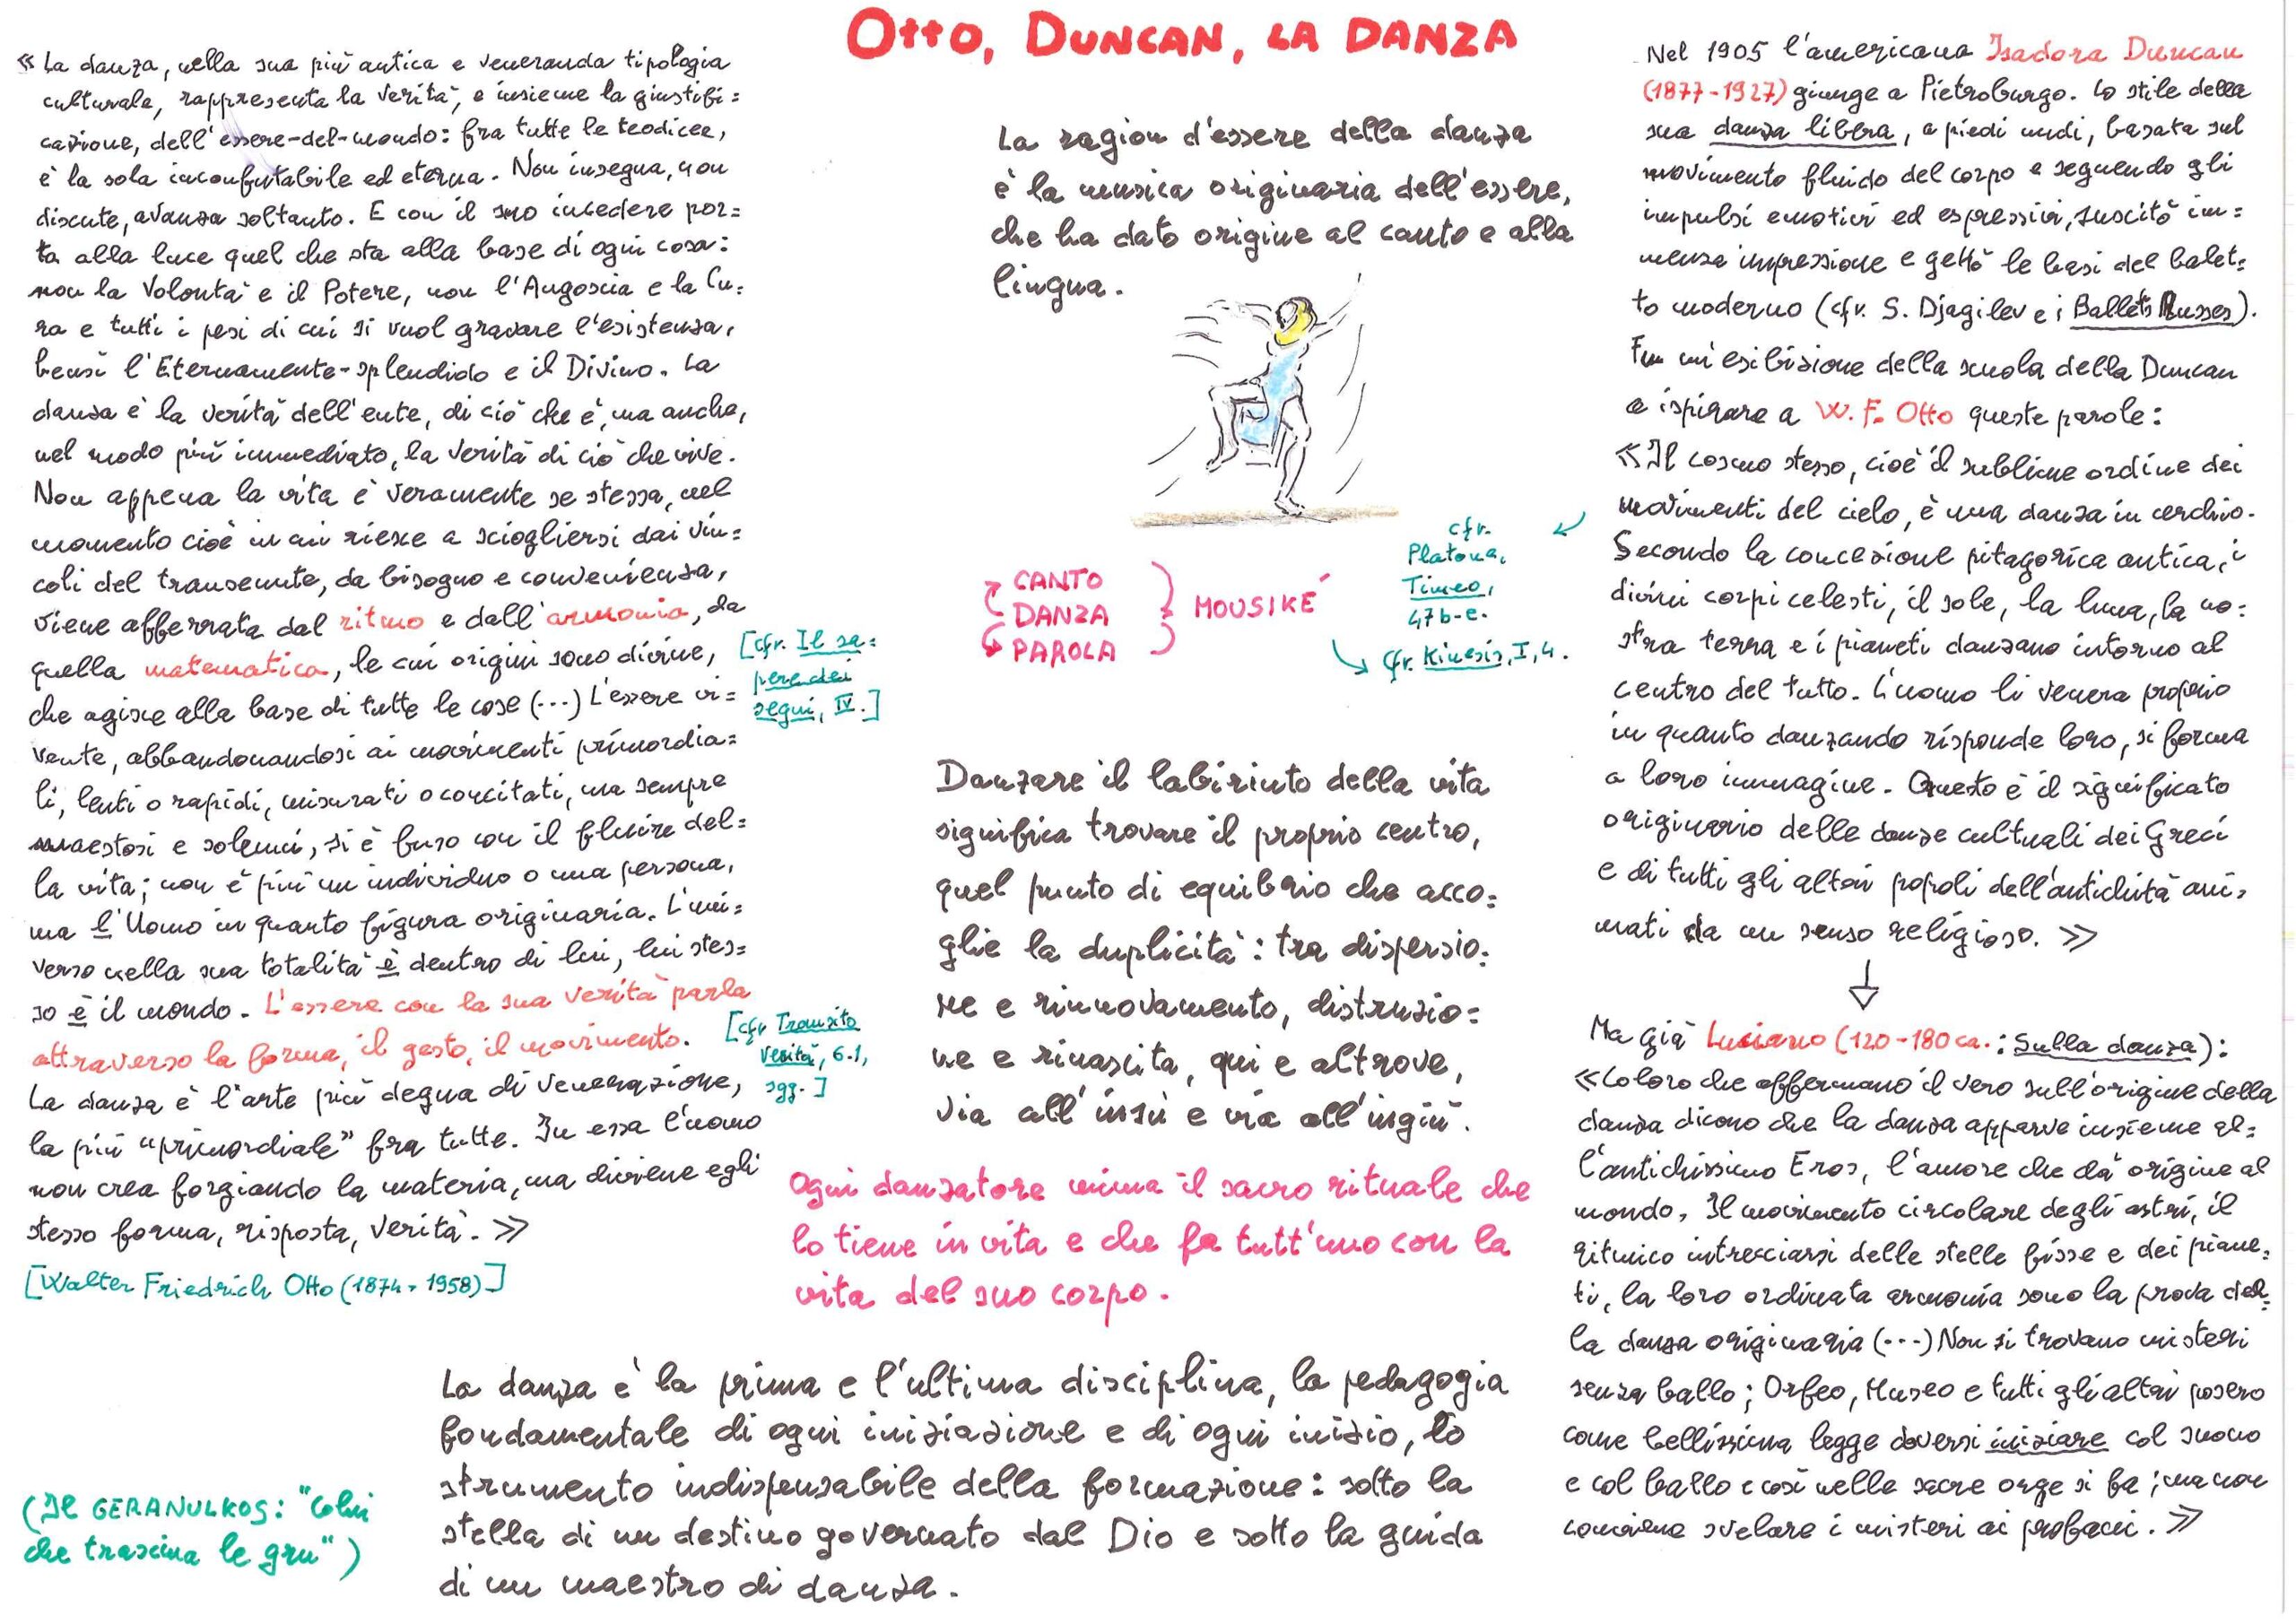 OTTO, DUNCAN, LA DANZA
« La danza, nella sua più antica e veneranda tipologia
culturale, rappresenta la verità, e insieme la giustifi=
cazione, dell'essere-del-mondo: fra tutte le teodicee,
è la sola inconfutabile ed eterna. Non insegna, non
discute, avanza soltanto. E con il suo incedere por=
ta alla luce quel che sta alla base di ogni cosa:
non la Volontà e il Potere, non l'Angoscia e la Cu=
ra e tutti i pesi di cui si vuol gravare l'esistenza,
bensì l'Eternamente-splendido e il Divino. La
danza è la verità dell'ente, di ciò che è, ma anche,
nel modo più immediato, la verità di ciò che vive.
Non appena la vita è veramente se stessa, nel
momento cioè in cui riesce a sciogliersi dai vin=
coli del transeunte, da bisogno e convenienza,
viene afferrata dal ritmo e dall'armonia, da
quella matematica, le cui origini sono divine,
che agisce alla base di tutte le cose (...) L'essere vi=
vente, abbandonandosi ai movimenti primordia=
li, lenti o rapidi, misurati o concitati, ma sempre
maestosi e solenni, si è fuso con il fluire del=
la vita; non è più un individuo o una persona,
ma l'Uomo in quanto figura originaria. L'uni=
verso nella sua totalità è dentro di lui, lui stes=
so è il mondo. L'essere con la sua verità parla
attraverso la forma, il gesto, il movimento.
La danza è l'arte più degna di venerazione,
la più "primordiale" fra tutte. In essa l'uomo
non crea forgiando la materia, ma diviene egli
stesso forma, risposta, verità. »
[Walter Friedrich Otto (1874-1958)]
[cfr. Il sa=
pere dei
segni, IV.]
[cfr Transito
Verità, 6.1,
sgg.]
(Il GERANULKOS: "Colui
che trascina le gru")
La ragion d'essere della danza
è la musica originaria dell'essere,
che ha dato origine al canto e alla
lingua.
CANTO
DANZA
PAROLA
MOUSIKÉ
cfr.
Platone,
Timeo,
47b-e.
Cfr. Kinesis, I, 4.
Danzare il labirinto della vita
significa trovare il proprio centro,
quel punto di equilibrio che acco=
glie la duplicità: tra dispersio=
ne e rinnovamento, distruzio=
ne e rinascita, qui e altrove,
via all'insù e via all'ingiù.
Ogni danzatore mima il sacro rituale che
lo tiene in vita e che fa tutt'uno con la
vita del suo corpo.
La danza è la prima e l'ultima disciplina, la pedagogia
fondamentale di ogni iniziazione e di ogni inizio, lo
strumento indispensabile della formazione: sotto la
stella di un destino governato dal Dio e sotto la guida
di un maestro di danza.
Nel 1905 l'americana Isadora Duncan
(1877-1927) giunge a Pietroburgo. Lo stile della
sua danza libera, a piedi nudi, basata sul
movimento fluido del corpo e seguendo gli
impulsi emotivi ed espressivi, suscitò im=
mensa impressione e gettò le basi del balet=
to moderno (cfr. S. Djagilev e i Ballets Russes).
Fu un'esibizione della scuola della Duncan
a ispirare a W. F. Otto queste parole:
«Il cosmo stesso, cioè il sublime ordine dei
movimenti del cielo, è una danza in cerchio.
Secondo la concezione pitagorica antica, i
divini corpi celesti, il sole, la luna, la no=
stra terra e i pianeti danzano intorno al
centro del tutto. L'uomo li venera proprio
in quanto danzando risponde loro, si forma
a loro immagine. Questo è il significato
originario delle danze cultuali dei Greci
e di tutti gli altri popoli dell'antichità ani=
mati da un senso religioso. »
Ma già Luciano (120-180 ca.: Sulla danza):
«Coloro che affermano il vero sull'origine della
danza dicono che la danza apparve insieme al=
l'antichissimo Eros, l'amore che dà origine al
mondo. Il movimento circolare degli astri, il
ritmico intrecciarsi delle stelle fisse e dei piane=
ti, la loro ordinata armonia sono la prova del=
la danza originaria (...) Non si trovano misteri
senza ballo; Orfeo, Museo e tutti gli altri posero
come bellissima legge doversi iniziare col suono
e col ballo e così nelle sacre orge si fa; ma non
conviene svelare i misteri ai profani. »